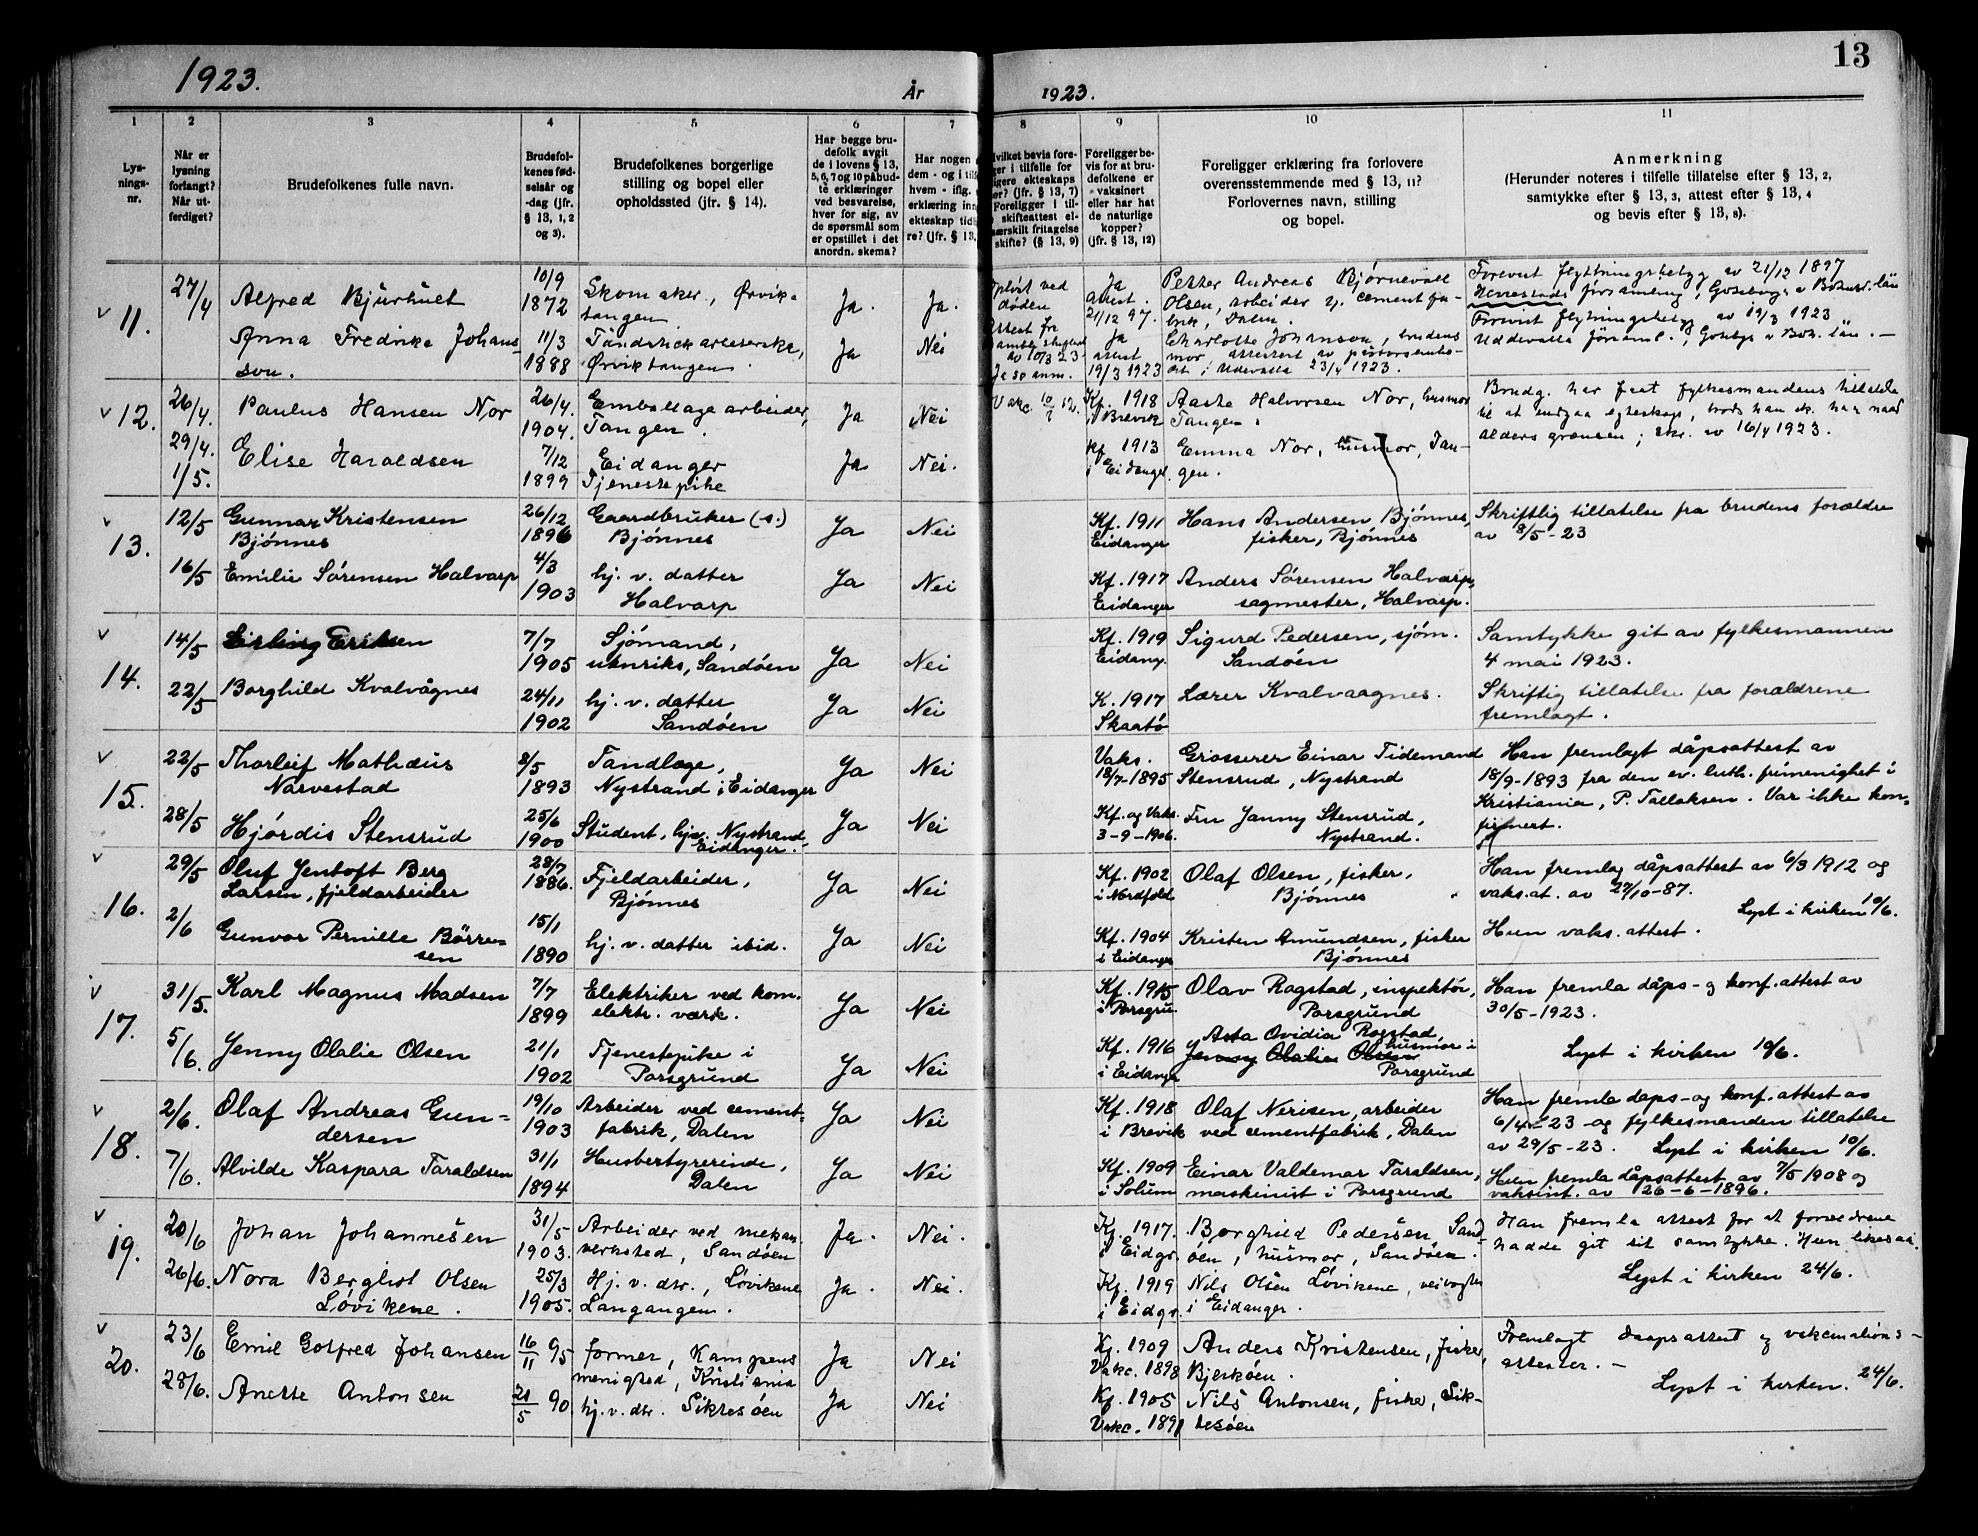 1923.
År
1923.
13
1
2
3
4
5
6
7
8
9
10
11
Lys-
nings-
nr.
Når er
lysning
forlangt?
Når ut-
ferdiget?
Brudefolkenes fulle navn.
Brudefol-
kenes fød-
selsår og
-dag (jfr.
§ 13, 1, 2
og 3).
Brudefolkenes borgerlige
stilling og bopel eller
opholdssted (jfr. § 14).
Har begge bru-
defolk avgit
de i lovens § 13,
5, 6, 7 og 10 påbud-
te erklæringer
ved besvarelse,
hver for sig, av
de spørsmål som
er opstillet i det
anordn. skema?
Har nogen
dem - og i til
hvem - iflg.
erklæring inn
ekteskap tidl
re? (jfr. § 13,
vilket bevis fore-
ger i tilfelle for
igere ekteskaps
ør? (jfr. § 13, 7)
Foreligger i til-
skifteattest el-
særskilt fritagelse
skifte? (§ 13, 9)
Foreligger be-
vis for at bru-
defolkene er
vaksinert
eller har hat
de naturlige
kopper?
(jfr. § 13, 12)
Foreligger erklæring fra forlovere
overensstemmende med § 13, 11?
Forlovernes navn, stilling
og bopel.
Anmerkning
(Herunder noteres i tilfelle tillatelse efter § 13, 2,
samtykke efter § 13, 3, attest efter § 13, 4
og bevis efter § 13, 8).
11.
27/4
Alfred Bjurhult
10/9
1872
Skomaker, Ørvik-
tangen
Ja.
Ja.
opløst ved
døden
Ja
attest.
21/12 97.
Petter Andreas Bjørnevall
Olsen, arbeider v. cementfa-
brik, Dalen.
Forevist flyttningsbetyg av 21/12 1897
församling, Goteborgs o Bohus. län
Anna Fredrika Johans-
son.
11/3
1888
Tändstickarbeiderske,
Ørviktangen.
Ja
Nei
Attest fra
Bamble skifteret
av 10/3 23
Ja
attest
19/3 1923
Charlotte Johanson, brudens
mor, attestert av pastorsembe-
det i Udevalla 23/4 1923.
Forevist flytningsbetyg av 19/3 1923
Uddevalla församl., Gotebgs o Boh. län. -
12.
26/4.
Paulus Hansen Nor
26/4.
1904.
Emballage arbeider,
Tangen.
Ja
Nei
Kf. 1918
i Brevik
Aaste Halvorsen Nor, husmor
Tangen.
Brudg. har faat fylkesmandens tillatelse
til at indgaa egteskap, trods han ik. har naad
aldersgrænsen; skr. av 16/4 1923.
29/4.
1/5.
Elise Haraldsen
7/12
1899
Eidanger
Tjenestepike
Ja
Nei.
Kf 1913
i Eidanger
Emma Nor, husmor, Tan-
gen.
13.
12/5
Gunnar Kristensen
Bjønnes
26/12
1896
Gaardbruker (s.)
Bjønnes
Ja
Nei
Kf. 1911
Eidanger
Hans Andersen Bjønnes,
fisker, Bjønnes
Skriftlig tillatelse fra brudens forældre
av 8/5-23
16/5
Emilie Sørensen Halvarp
4/3
1903
hj. v. datter
Halvarp
Ja
Nei
Kf. 1917
Eidanger
Anders Sørensen Halvarp,
sagmester, Halvarp.
14.
14/5
Erling Eriksen
7/7
1905
Sjømand,
utenriks, Sandøen
Ja
Nei
Kf. 1919
Eidang.
Sigurd Pedersen, sjøm.
Sandøen
Samtykke git av fylkesmannen
4 mai 1923.
22/5
Borghild Kvalvågnes
24/11
1902
hj. v. datter
Sandøen
Ja
Nei
K. 1917
Skaatø
Lærer Kvalvaagnes.
Skriftig tillatelse fra forældrene
fremlagt.
15.
22/5
Thorleif Mathæus
Narvestad
8/5
1893
Tandlæge,
Nystrand i Eidanger
Ja
Nei
Vaks.
18/7-1895
Grosserer Einar Tidemand
Stensrud, Nystrand
Han fremlagt dåpsattest av
18/9-1893 fra den ev. luth. frimenighet i
Kristiania, P. Tallaksen. Var ikke kon-
firmert.
28/5
Hjørdis Stensrud
25/6
1900
Student, hjv. Nystrand,
Eidanger.
Ja
Nei
Kf. og Vaks.
3-9-1906.
Fru Janny Stensrud,
Nystrand.
16.
29/5
Oluf Jentoft Berg
Larsen, fjeldarbeider
28/7
1886.
Fjeldarbeider,
Bjønnes
Ja
Nei
Kf. 1902
i Nordfold
Olaf Olsen, fisker,
Bjønnes
Han fremlag dåpsattest av 6/3 1912 og
vaks.at. av 27/10-87.
Lyst i kirken 10/6.
2/6
Gunvor Pernille Børre-
sen
15/1
1890
hj. v. datter ibid.
Ja
Nei
Kf. 1904
i Eidanger
Kristen Amundsen, fisker
Bjønnes
Hun vaks. attest.
17.
31/5.
Karl Magnus Madsen
7/7
1899
Elektriker ved kom.
elektr. værk.
Ja
Nei
Kf. 1915
i Porsgru.
Olav Rogstad, inspektør,
Porsgrund
Han fremla dåps- og konf. attest av
30/5-1923.
5/6.
Jenny Olalie Olsen
21/1
1902
Tjenestepike i
Porsgrund
Ja
Nei
Kf. 1916
i Eidanger
Asta Ovidia Rogstad,
Jenny Olalie Olsen
husmor i
Porsgrund
Lyst i kirken 10/6.
18.
2/6.
Olaf Andreas Gun-
dersen
19/10
1903
Arbeider ved cement-
fabrik, Dalen
Ja
Nei
Kf. 1918
i Brevik
Olaf Nerisen, arbeider
ved cementfabrik, Dalen
Han fremla daps- og konf. attest av
6/4-23 og fylkesmanden tillatelse
av 29/5-23. Lyst i kirken 10/6.
7/6.
Alvilde Kaspara Taraldsen
31/1
1894
Husbertyrerinde,
Dalen
Ja
Nei
Kf. 1909
i Solum
Einar Valdemar Taraldsen,
maskinist i Porsgrund
Hun fremla dåpsattest av 7/5 1908 og
vaksint. av 26-6-1896.
19.
20/6
Johan Johannesen
31/5
1903.
Arbeider ved mekan
verksted, Sandøen
Ja.
Nei.
Kf. 1917.
i Eidgr.
Borghild Pedersen, Sand-
øen, husmor, Sandøen.
Han fremla attest for at foreldrene
hadde git sit samtykke. Hun likesaa.
Lyst i kirken 24/6.
26/6.
Nora Bergliot Olsen
Løvikene.
25/3
1905.
Hj. v. dtr., Løvikene
Langangen.
Ja.
Nei.
Kf. 1919
i Eidgr.
Nils Olsen Løvikene, veivogter
i Eidanger.
20.
23/6
Emil Gotfred Johansen
16/11 95
former, Kampens
menighed, Kristiania
Ja
Nei
Kf. 1909
Vakc. 1898
Anders Kristensen, fisker,
Bjerkøen.
Fremlagt daapsattest og vakcinations-
attester. -
Lyst i kirken. 24/6.
28/6.
Anette Antonsen
21/5 90
hj. v. dtr. Siktesøen
Ja
Nei
Kf. 1905
Vakc. 1891
Nils Antonsen, fisker, Sik-
tesøen